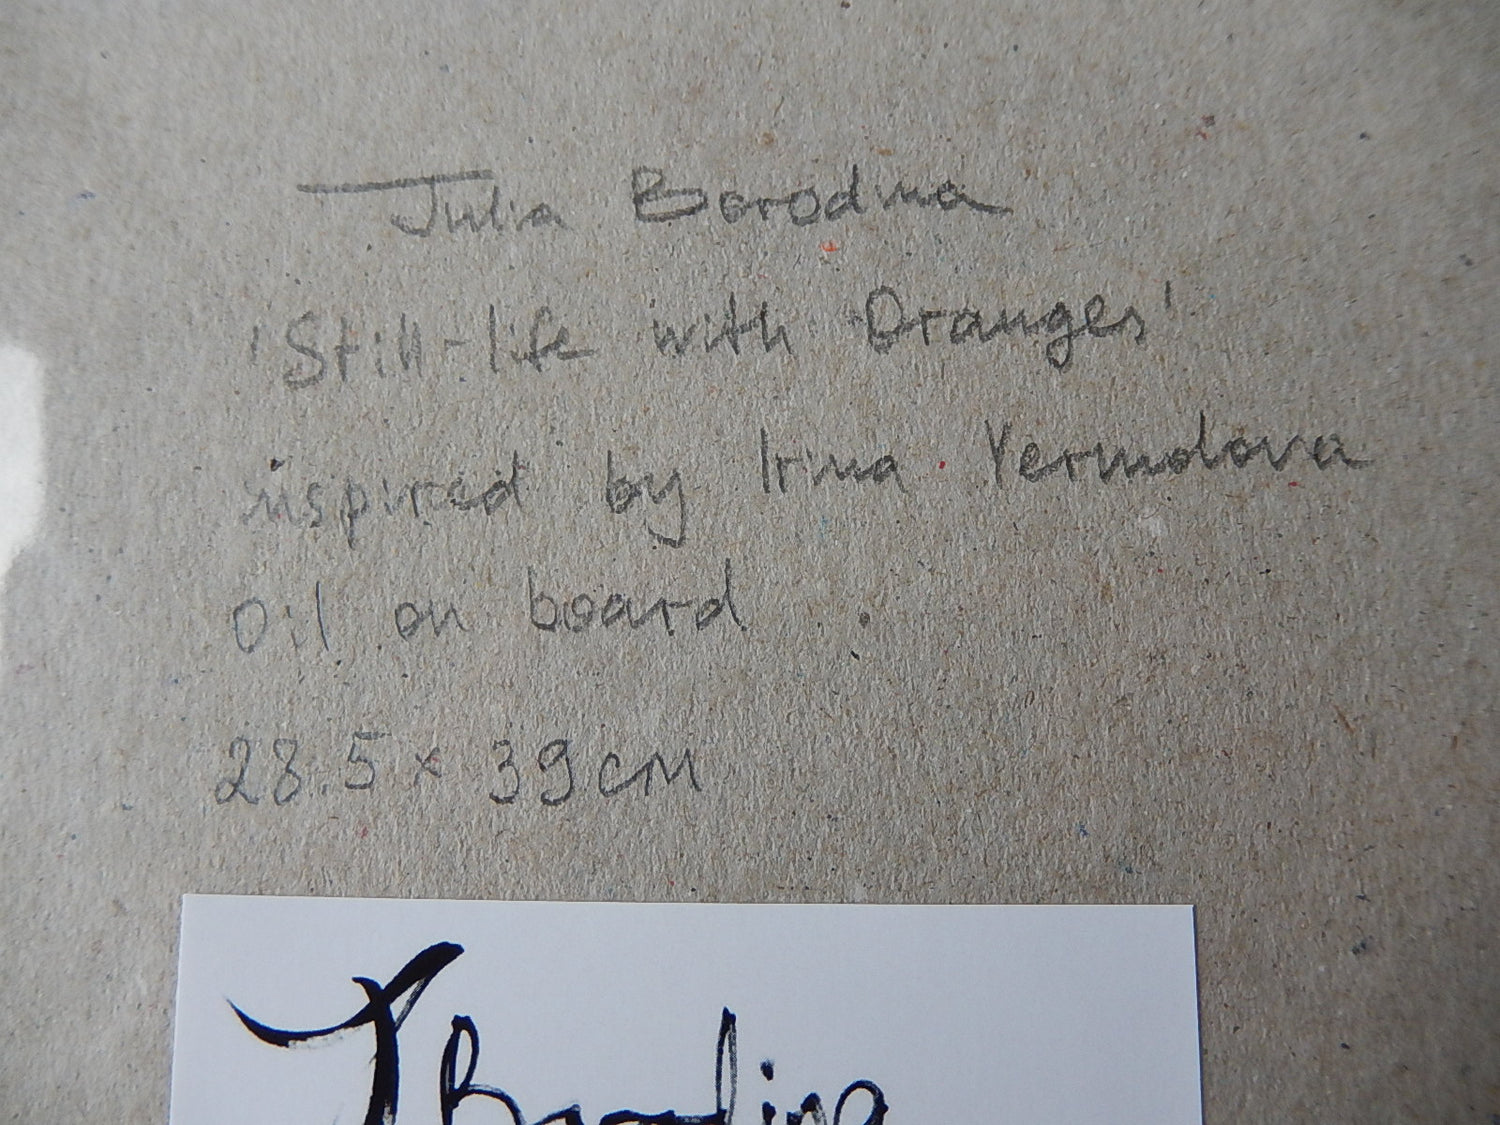 Julia Borodina
'Still-life with Oranges'
inspired by Irina Yermolova
Oil on board
28.5 x 39 cм
J Borodina